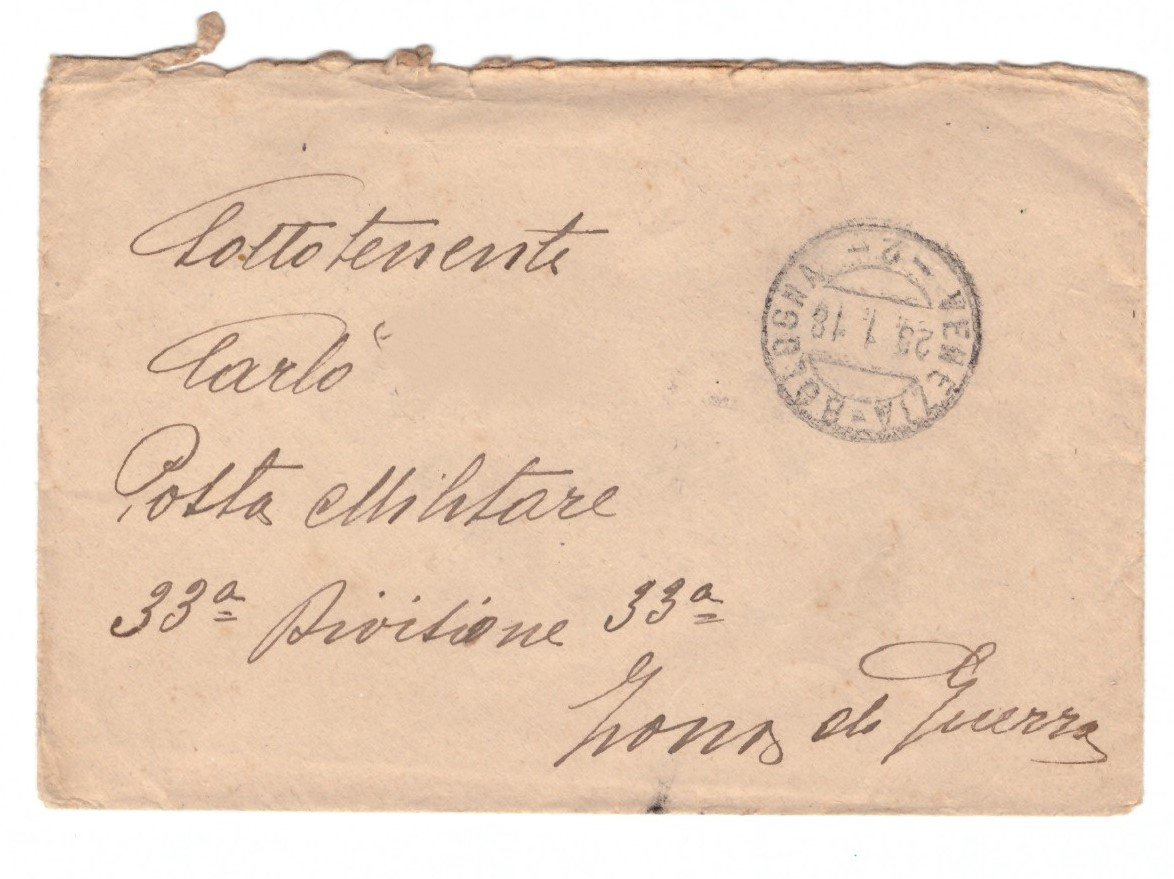 Sottotenente
Carlo
Posta Militare
33ª Divisione 33ª
Zona di Guerra
VENEZIA-BOLOGNA
-2-
1.18